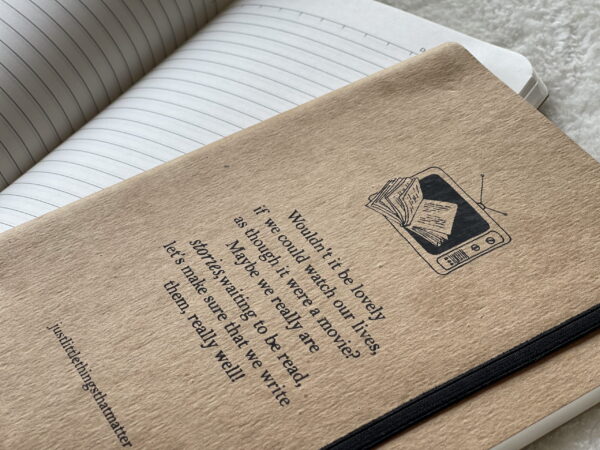 Wouldn't it be lovely
if we could watch our lives,
as though it were a movie?
Maybe we really are
stories,waiting to be read,
let's make sure that we write
them, really well!
justlittlethingsthatmatter